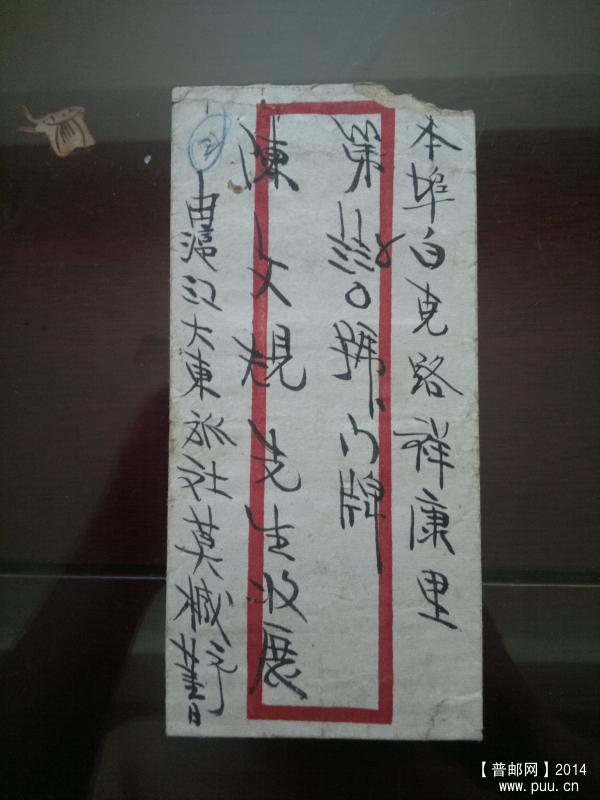 本埠白克路祥康里
第 0號門牌
陳文規先生收展
由滬江大東旅社莫 
【普邮网】2014
www.puu.cn